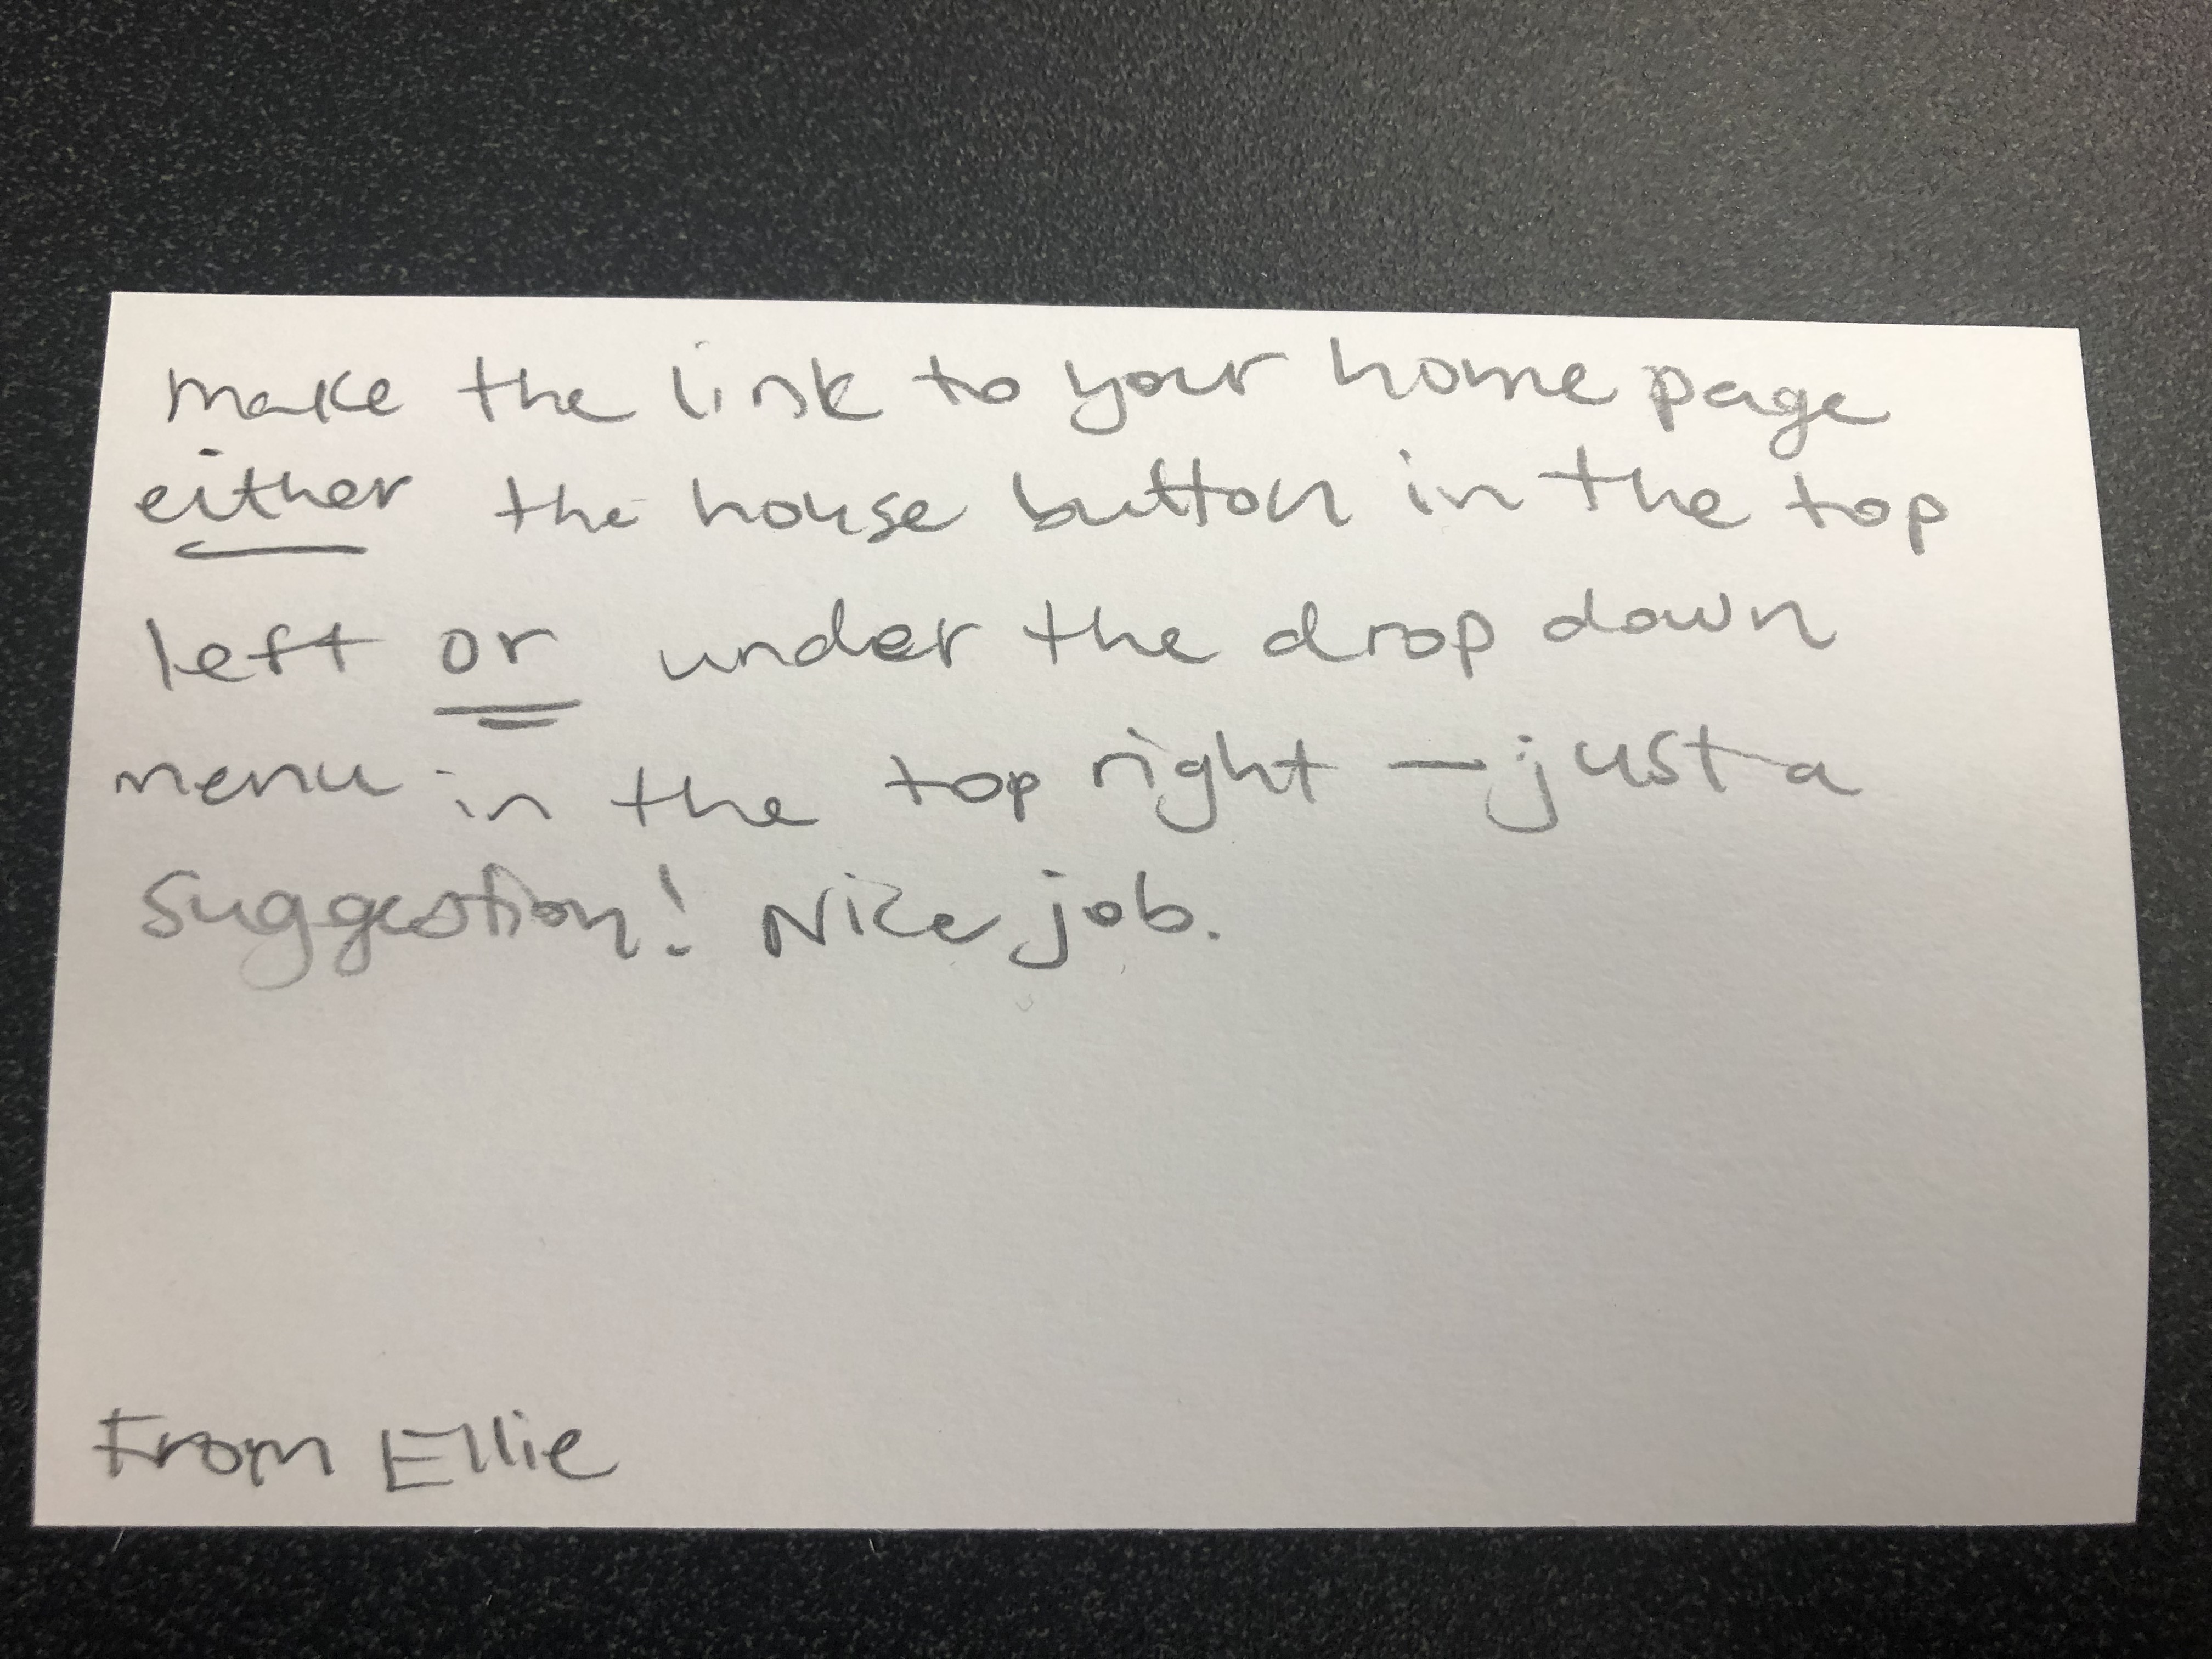 make the link to your home page
either the house button in the top
left or under the drop down
menu in the top right - just a
suggestion! Nice job.
From Ellie